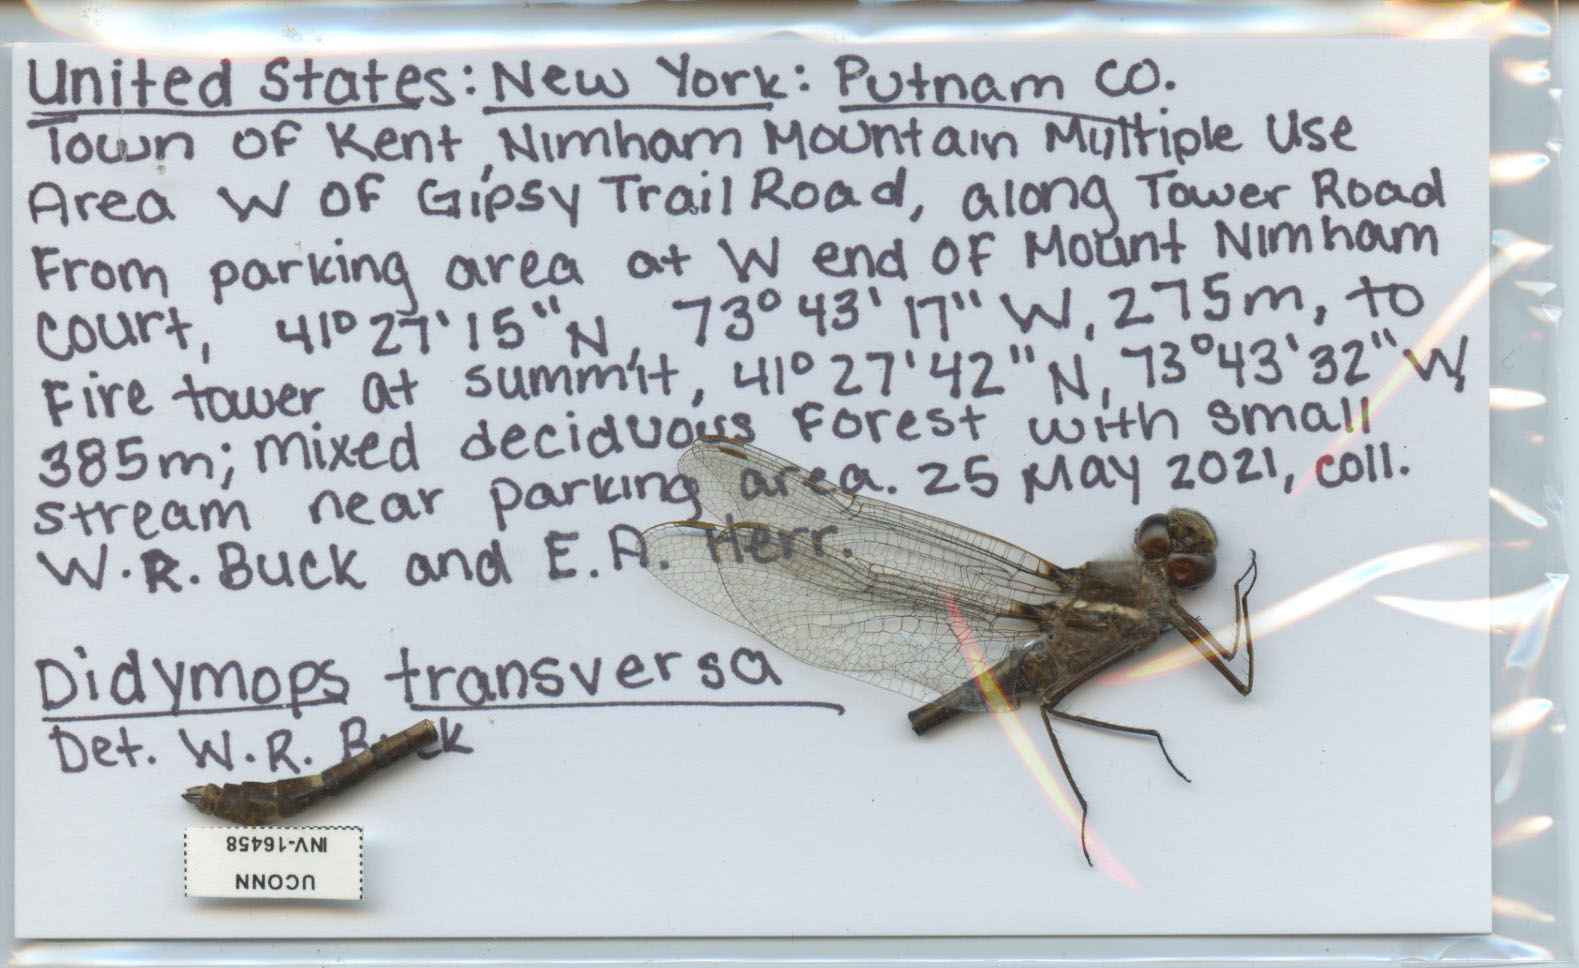 United States: New York: Putnam CO.
Town of Kent, Nimham Mountain Multiple Use
Area W OF Gipsy Trail Road, along Tower Road
From parking area at W end OF Mount Nimham
Court, 41° 27' 15" N, 73° 43' 17" W, 275m, to
Fire tower at summit, 41° 27' 42" N, 73° 43' 32" W,
385m; mixed deciduous Forest with small
stream near parking area. 25 May 2021, coll.
W.R. Buck and E.A. Herr.
Didymops transversa
Det. W.R. Buck
UCONN
INV-16458